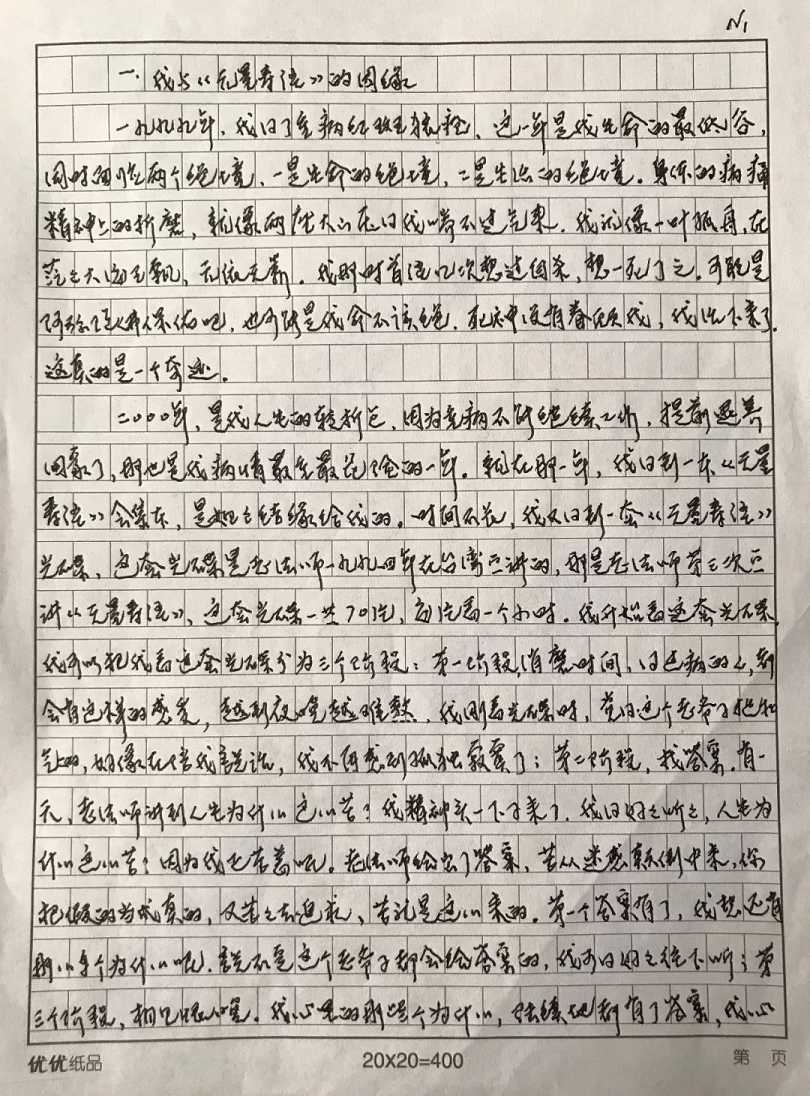 N1
一.我与《无量寿经》的因缘
一九九九年，我得了重病红斑狼疮、这一年是我生命的最低谷，
同时面临两个绝境，一是生命的绝境，二是生活的绝境。身体的病痛
精神上的折磨，就像两座大山压得我喘不过气来。我就像一叶孤舟，在
茫茫大海里飘，无依无靠。我那时曾经几次想过自杀，想一死了之。可能是
阿弥陀佛保佑吧，也可能是我命不该绝，死神没有眷顾我，我活下来了。
这真的是一个奇迹。
二000年，是我人生的转折点，因为患病不能继续工作，提前退养
回家了，那也是我病情最重最危险的一年。就在那一年，我得到一本《无量
寿经》会集本，是姐姐结缘给我的。时间不长，我又得到一套《无量寿经》
光碟，这套光碟是老法师一九九四年在台湾宣讲的，那是老法师第三次宣
讲《无量寿经》，这套光碟一共70片，每片看一个小时。我开始看这套光碟，
我可以把我看这套光碟分为三个阶段：第一阶段，消磨时间，得过病的人，都
会有这样的感觉，越到夜晚越难熬，我刚看光碟时，觉得这个老爷子挺和
气的，好像在陪我说话，我不再感到孤独寂寞了；第二阶段，找答案。有一
天，老法师讲到人生为什么这么苦？我精神头一下子来了，我得好好听听，人生为
什么这么苦？因为我也苦着呢。老法师给出了答案，苦从迷惑颠倒中来，你
把假的当成真的，又苦苦去追求，苦就是这么来的。第一个答案有了，我想还有
那么多个为什么呢，说不定这个老爷子都会给答案的，我可得好好往下听；第
三个阶段，相见恨晚。我心里的那些个为什么，陆续地都有了答案，我心
优优纸品 20X20=400 第 页